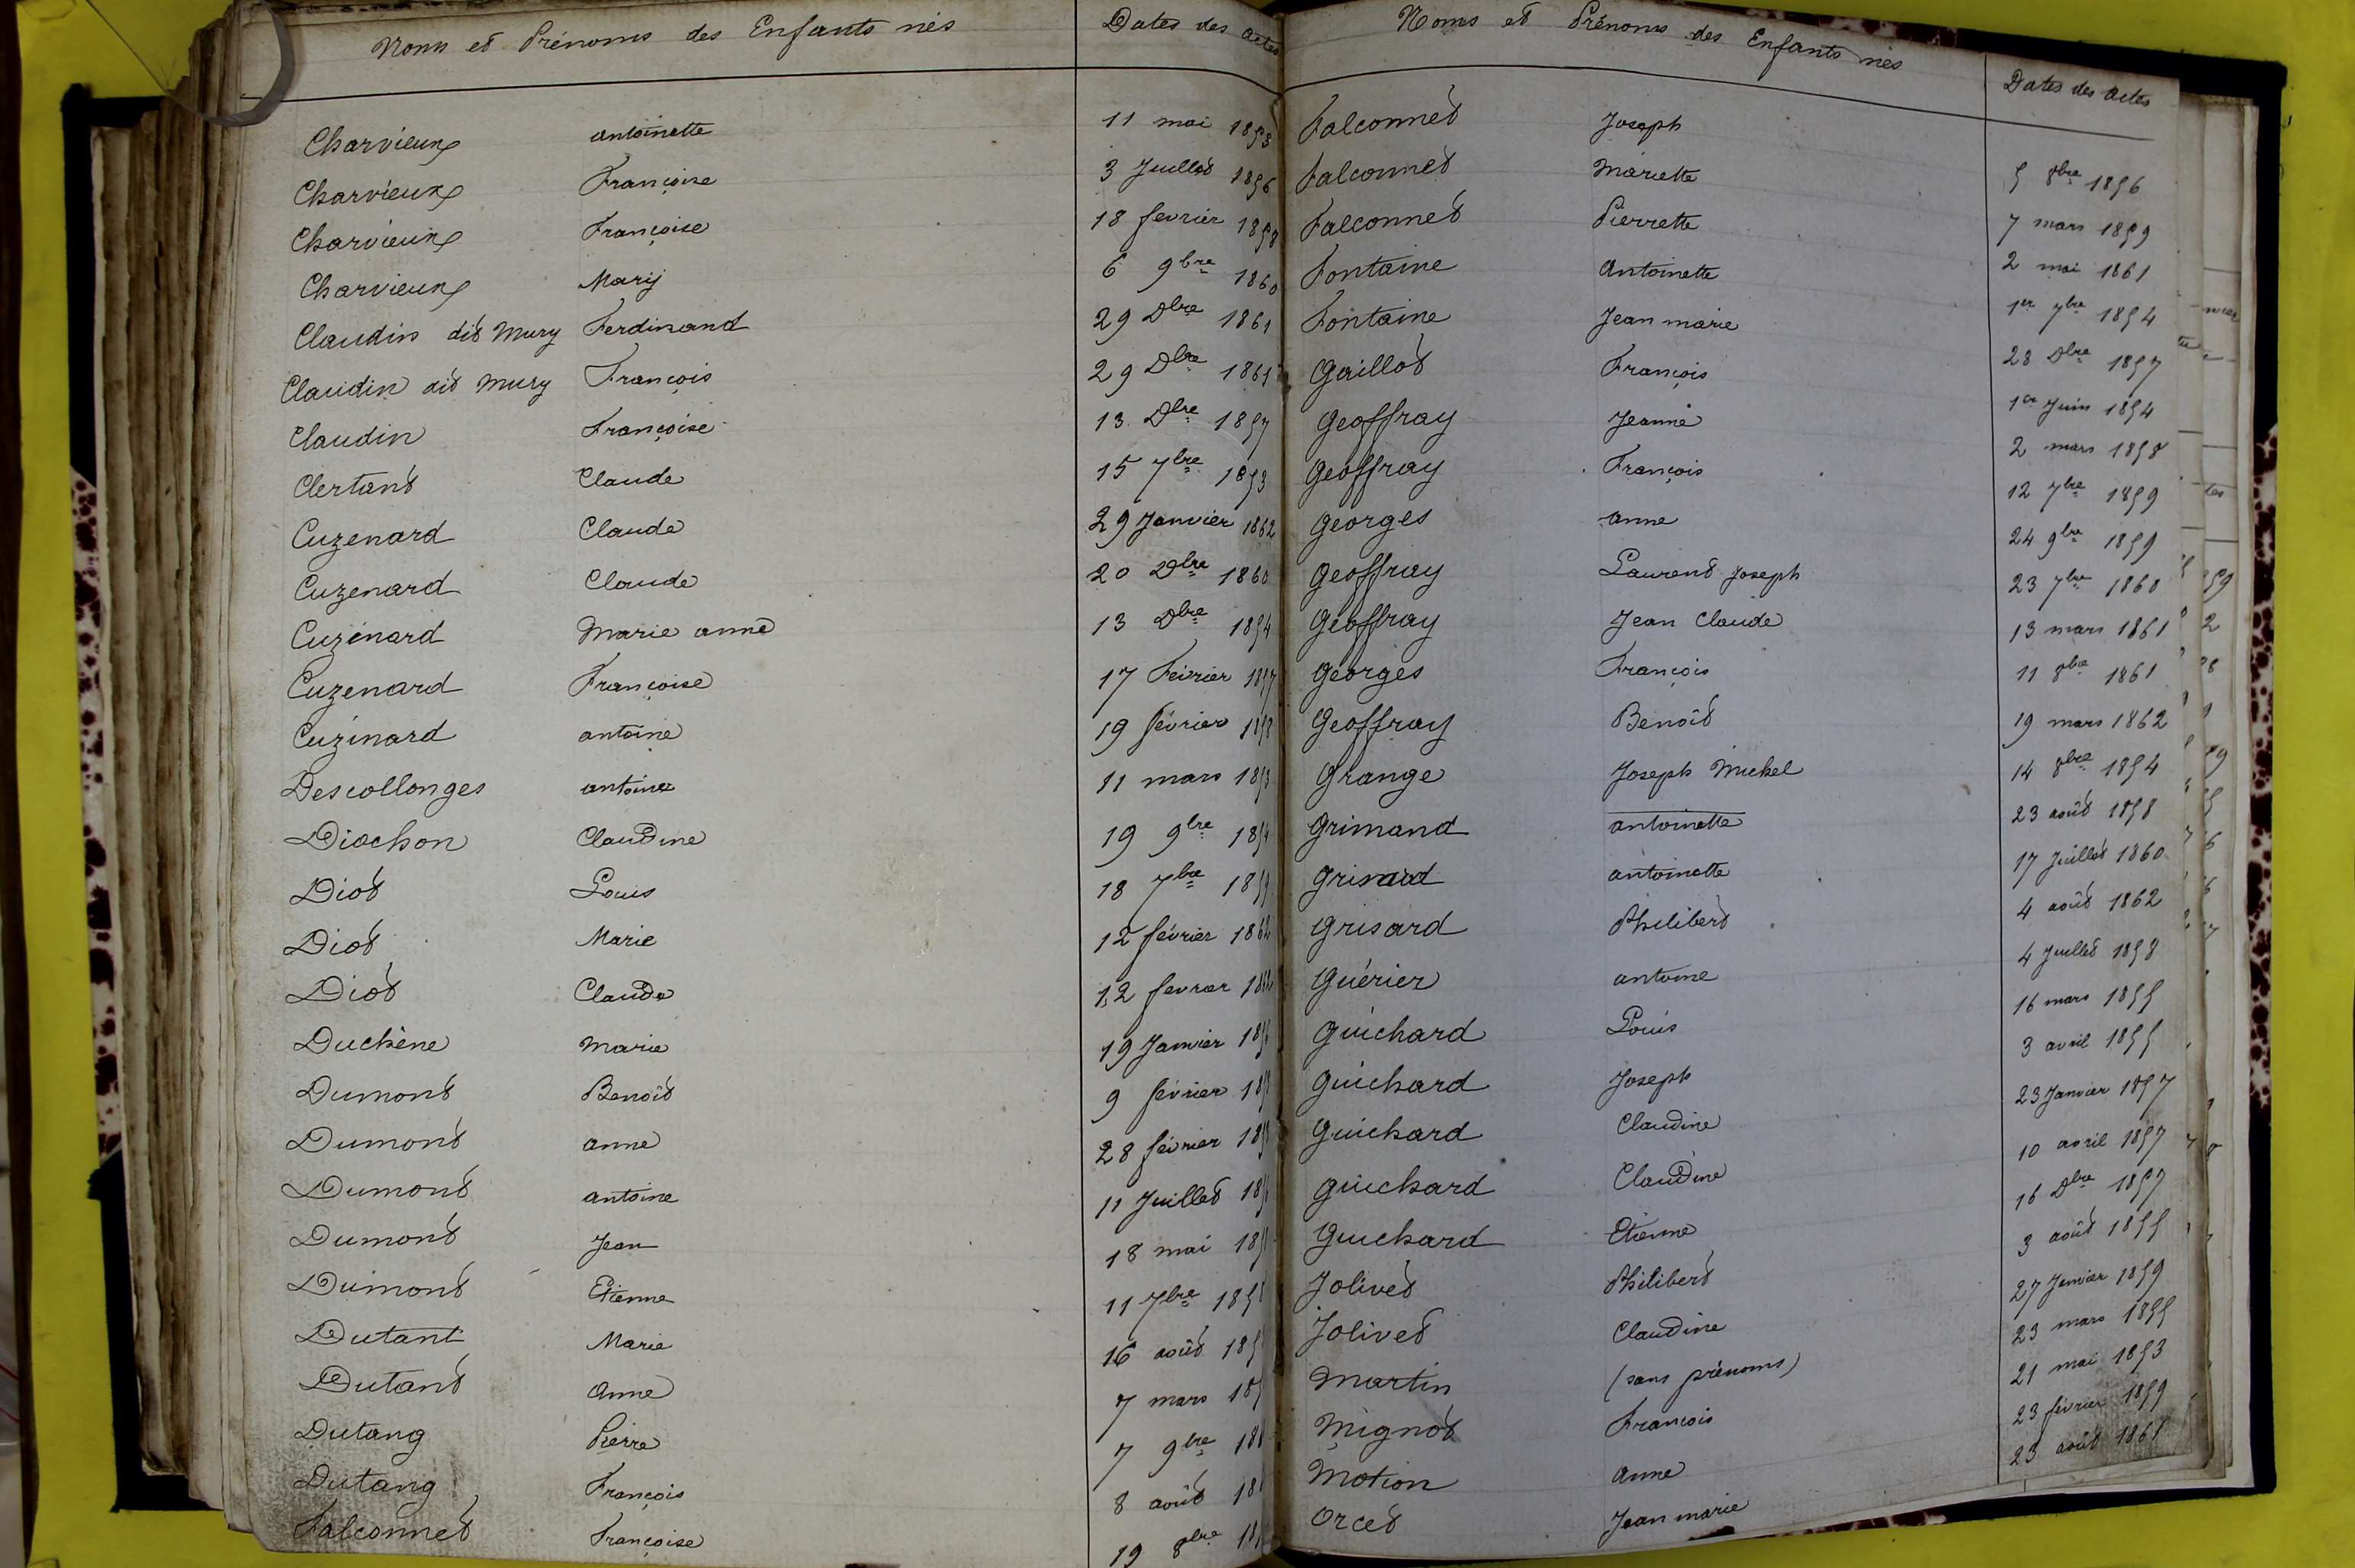 Noms et Prénoms des Enfants nés Dates des actes
Charvieux antoinette 11 mai 1853
Charvieux Françoise 3 Juillet 1856
Charvieux Françoise 18 fevrier 1858
Charvieux Marij 6 9bre 1860
Claudin dit Mury Ferdinand 29 Dbre 1861
Claudin dit Mury François 29 Dbre 1861
Claudin Françoise 13 Dbre 1857
Clertant Claude 15 7bre 1853
Cuzenard Claude 29 Janvier 1862
Cuzenard Claude 20 Dbre 1860
Cuzénard Marie anne 13 Dbre 1854
Cuzenard Françoise 17 Février 1857
Cuzinard antoine 19 février 1858
Descollonges antoine 11 mars 1853
Diochon Claudine 19 9bre 1854
Diot Louis 18 7bre 1859
Diot Marie 12 février 1862
Diot Claude 12 fevrier 1862
Duchêne Marie 19 Janvier
Dumont Benoît 9 février
Dumont anne 28 février
Dumont antoine 11 Juillet
Dumont Jean 18 mai
Dumont Etienne 11 7bre
Dutant Marie 16 août
Dutant Anne 7 mars
Dutang Pierre 7 9bre
Dutang François 8 août
Falconnet Françoise 19 8bre
Noms et Prénoms des Enfants nés Dates des Actes
Falconnet Joseph 5 8bre 1856
Falconnet Mariette 7 mars 1859
Falconnet Pierrette 2 mai 1861
Fontaine Antoinette 1er 7bre 1854
Fontaine Jean marie 28 Dbre 1857
Gaillot François 1er Juin 1854
Geoffray Jeanne 2 mars 1858
Geoffray François 12 7bre 1859
Georges anne 24 9bre 1859
Geoffray Laurent Joseph 23 7bre 1860
Geoffray Jean Claude 13 mars 1861
Georges François 11 8bre 1861
Geoffray Benoît 19 mars 1862
Grange Joseph Michel 14 8bre 1854
Grimand antoinette 23 août 1858
Grisard antoinette 17 Juillet 1860
Grisard Philibert 4 août 1862
Guérier antoine 4 Juillet 1858
Guichard Louis 16 mars 1855
Guichard Joseph 3 avril 1855
Guichard Claudine 23 Janvier 1857
Guichard Claudine 10 avril 1857
Guichard Etienne 16 Dbre 1857
Jolivet Philibert 3 août 1855
Jolivet Claudine 27 Janvier 1859
Martin (sans prénoms) 23 mars 1855
Mignot François 21 mai 1853
Motion anne 23 février 1859
Orcet Jean marie 23 août 1861